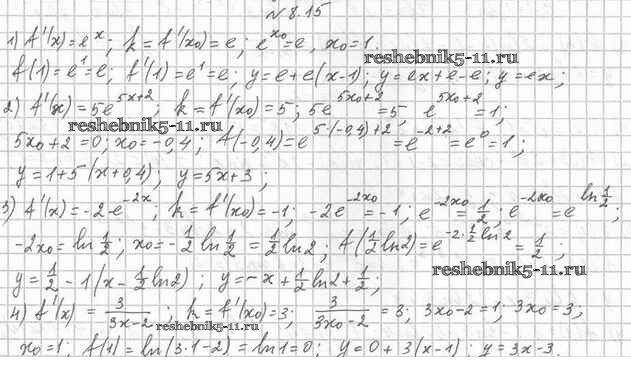 № 8.15
1) f'(x) = e^x; k = f'(x₀) = e; e^{x₀} = e, x₀ = 1.
reshebnik5-11.ru
f(1) = e¹ = e; f'(1) = e¹ = e; y = e + e(x-1); y = ex + e - e; y = ex;
2) f'(x) = 5e^{5x+2}; k = f'(x₀) = 5; 5e^{5x₀+2} = 5, e^{5x₀+2} = 1;
reshebnik5-11.ru
5x₀ + 2 = 0; x₀ = -0,4; f(-0,4) = e^{5·(-0,4)+2} = e^{-2+2} = e⁰ = 1;
y = 1 + 5(x + 0,4); y = 5x + 3;
3) f'(x) = -2·e^{-2x}; k = f'(x₀) = -1; -2e^{-2x₀} = -1; e^{-2x₀} = 1/2; e^{-2x₀} = e^{ln 1/2};
-2x₀ = ln 1/2; x₀ = -1/2 ln 1/2 = 1/2 ln 2; f(1/2 ln 2) = e^{-2·1/2 ln 2} = 1/2;
reshebnik5-11.ru
y = 1/2 - 1(x - 1/2 ln 2); y = -x + 1/2 ln 2 + 1/2;
4) f'(x) = 3/(3x-2); k = f'(x₀) = 3; 3/(3x₀-2) = 3; 3x₀ - 2 = 1; 3x₀ = 3;
reshebnik5-11.ru
x₀ = 1; f(1) = ln(3·1-2) = ln 1 = 0; y = 0 + 3(x-1); y = 3x - 3.